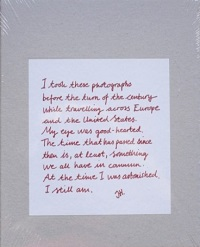 I took these photographs
before the turn of the century
while travelling across Europe
and the United States.
My eye was good-hearted.
The time that has passed since
then is, at least, something
we all have in common.
At the time I was astonished.
I still am.